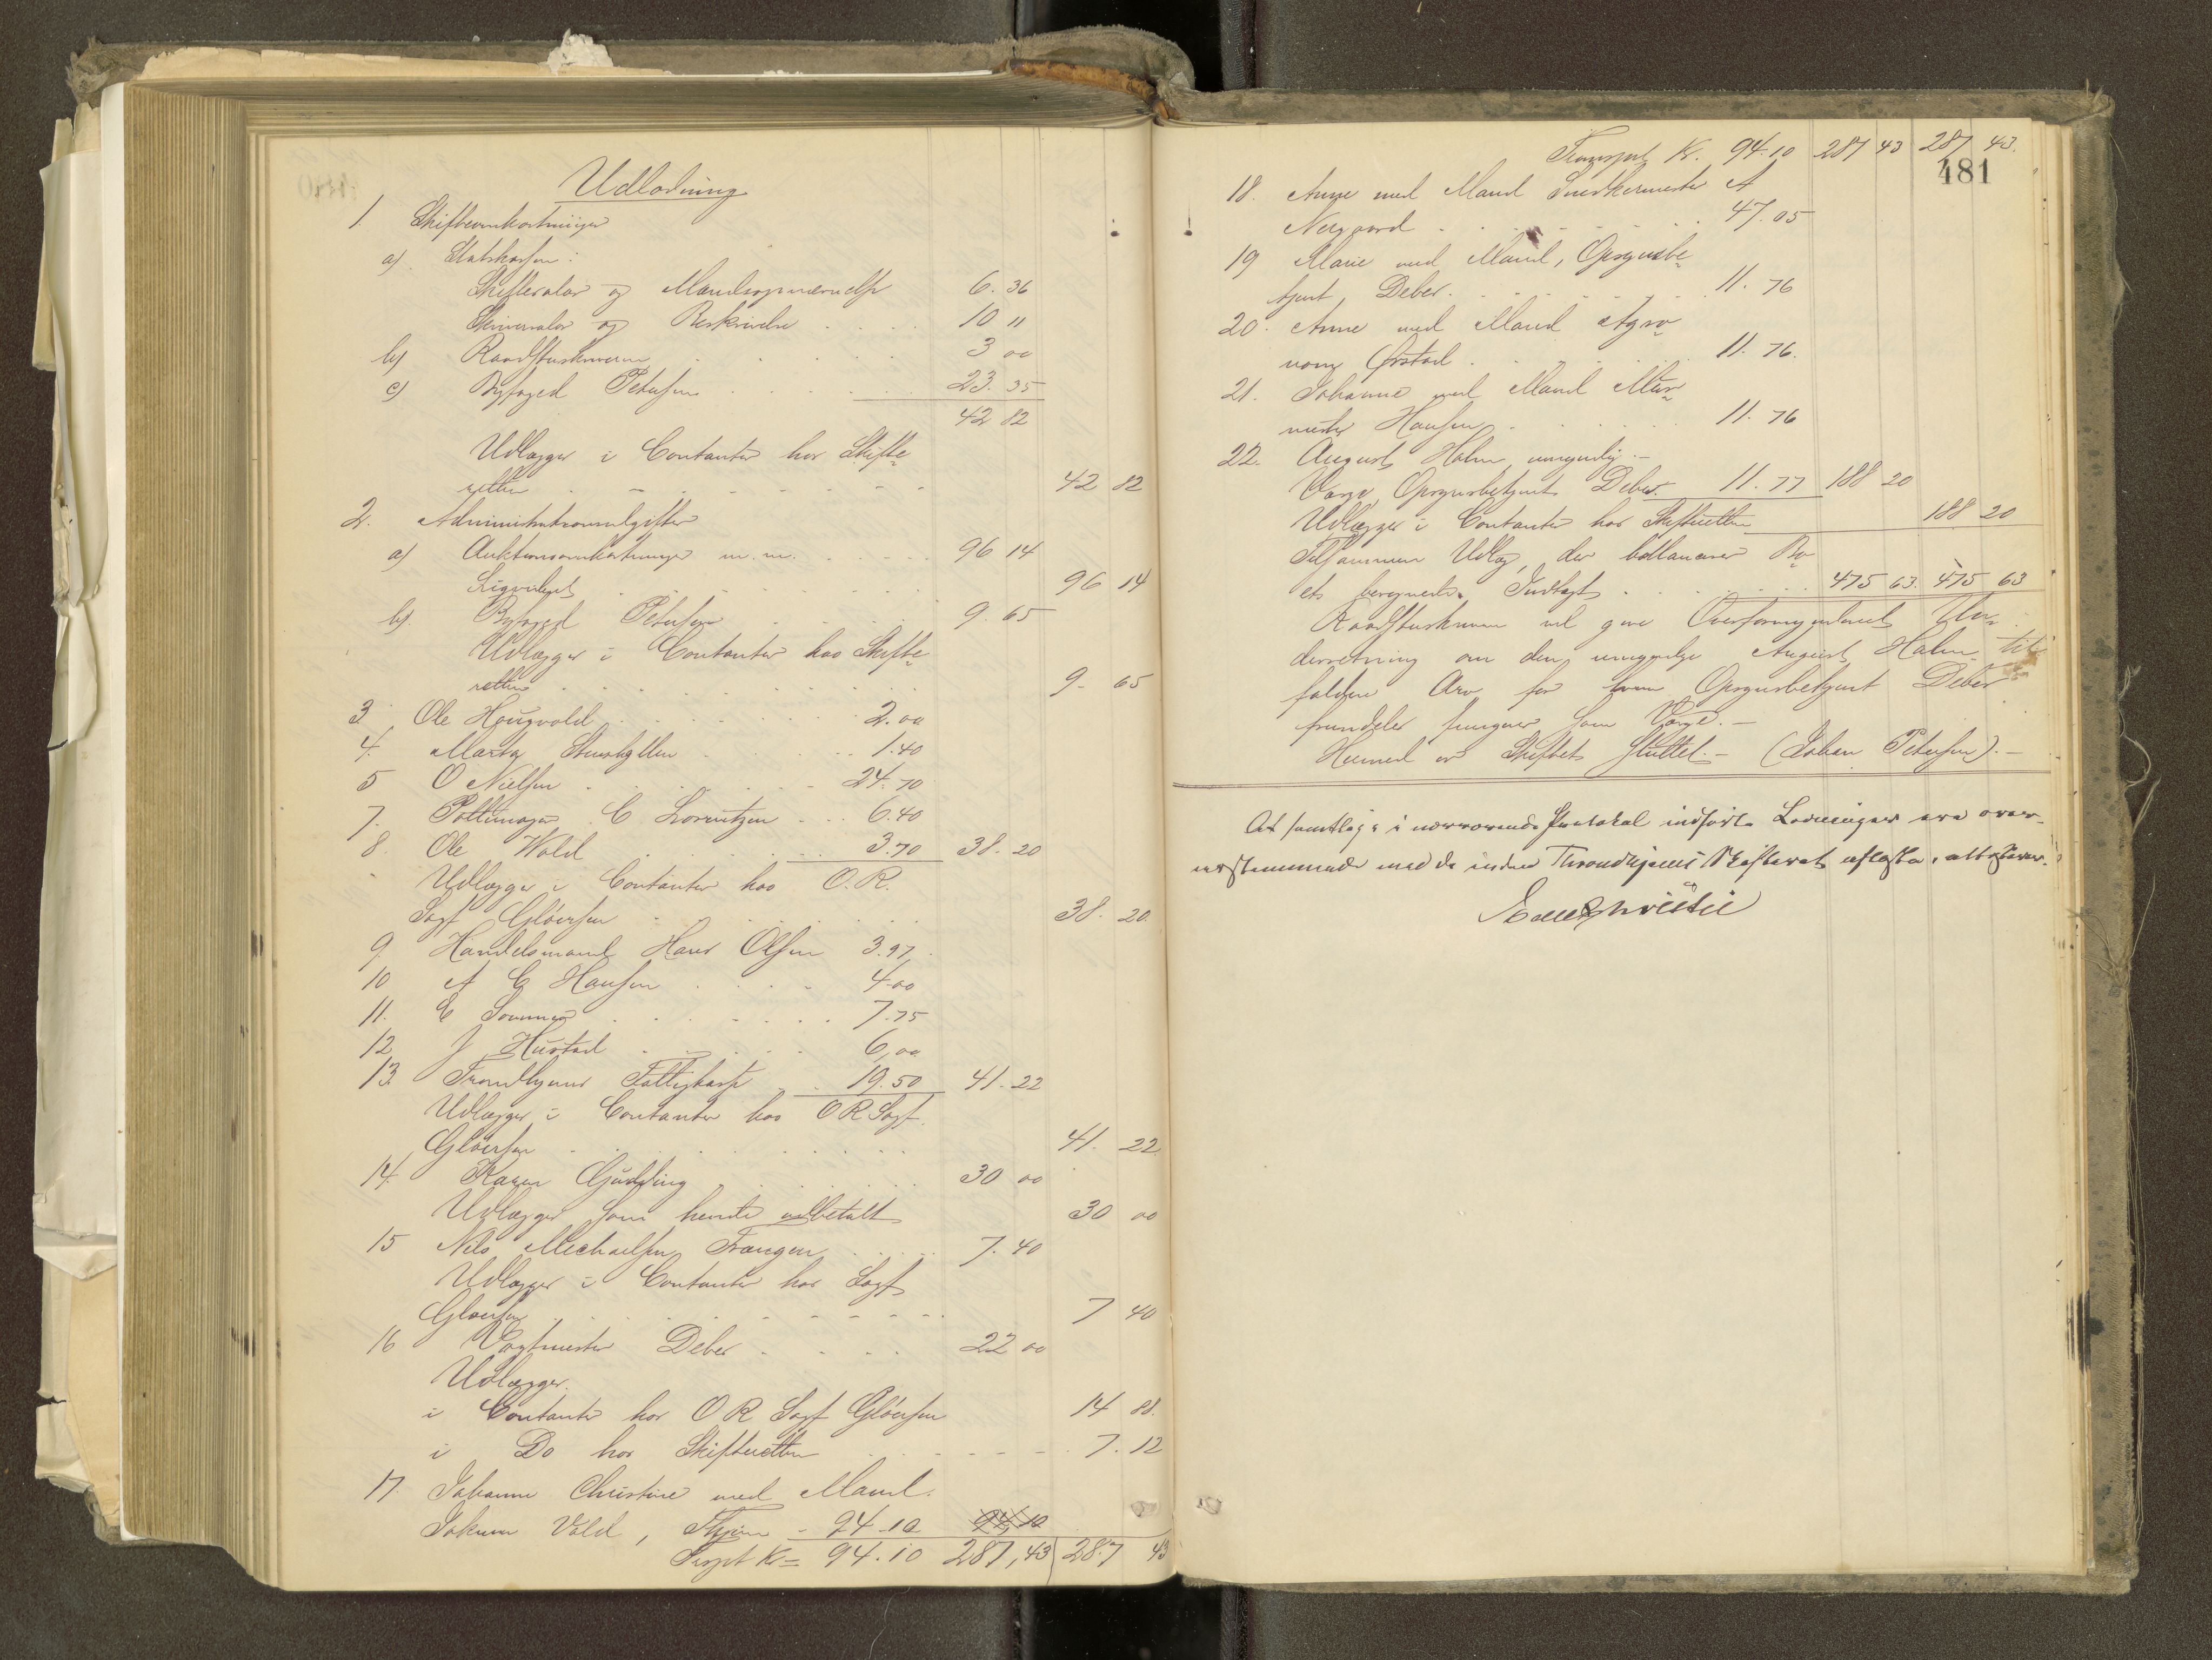 Udlodning
1. Skifteomkostninger
a) Statskassen:
Skifteralar og Mandsopnævnelse 6. 36
Skriversalær og Beskrivelse . . . . 10 "
b) Raadstuskriveren . . . . . 3 00
c) Byfoged Petersen . . . . . 23. 35
42 82
Udlægges i Contanter hos Skifte
retten . . . . . . . 42 82
2. Administrationsudgifter
a) Auktionsomkostninger m.m. . . . . 96 14
Ligvideret . . . . . . . 96 14
b). Byfoged Petersen . . . . 9. 65
Udlægges i Contanter hos Skifte
retten . . . . . . . . . 9. 65
3 Ole Haugvold . . . . . . . 2.00
4. Marta Stenshyllen . . . . 1.40
5 O Nielsen . . . . . . . 24.70
7. Pottemager C Lorentzen . . . 6.40
8. Ole Wold . . . . . . . 3.70 38. 20
Udlægges i Contanter hos O.R.
Sagf Gløersen . . . . . . . 38. 20.
9 Handelsmand Hans Olsen 3.97
10 A C Hansen . . . . 4.00
11. E Sommer . . . . . . . 7.75
12 J Hustad . . . . . . 6,00
13. Trondhjems Fattigkasse . . 19.50 41. 22
Udlægges i Contanter hos O R Sagf.
Gløersen . . . . . . . . 41. 22
14. Karen Gjudsling . . . . . . 30 00
Udlægges som hende udbetalt 30 00
15 Nils Michaelsen Trangen . . . . 7. 40
Udlægges i Contanter hos Sagf
Gløersen . . . . . . . . . 7 40
16 Vagtmester Deber . . . . 22 00
Udlægges.
i Contanter hos O R Sagf Gløersen 14 88.
i Do hos Skifteretten . . . . . 7. 12
17. Johanne Christine med Mand.
Jokum Vold, Thjem - 94.10 94 10
Trspt Kr = 94.10 287,43 287 43
Transport Kr. 94.10 287 43 287 43.
481
18. Anne med Mand Snedkermester A
Nergaard . . . . . . . . 47.05
19 Marie med Mand, Opsynsbe
tjent Deber. . . . . . . . 11. 76
20. Anne med Mand Agro
nom Ørstad . . . . . . . 11. 76.
21. Johanne med Mand Mur
mester Hansen . . . . . . 11. 76
22. August Holm umyndig.-
Værge, Opsynsbetjent Deber. 11. 77 188 20
Udlægges i Contanter hos Skifteretten 188 20
Tilsammen Udlæg, der ballancerer Bo
ets beregnede Indtægt . . . . . . 475 63. 475 63
Raadstuskriveren vil give Overformynderiet Un
derretning om den umyndige August Holm til
falden Arv for hvem Opsynsbetjent Deber
fremdeles fungerer som Værge.-
Hermed er Skiftet sluttet.- (Johan Petersen).-
At samtlige i nærværende Protokol indførte Lodninger ere over-
ensstemmende med de inden Throndhjems Skifteret aflagte, attesteres.